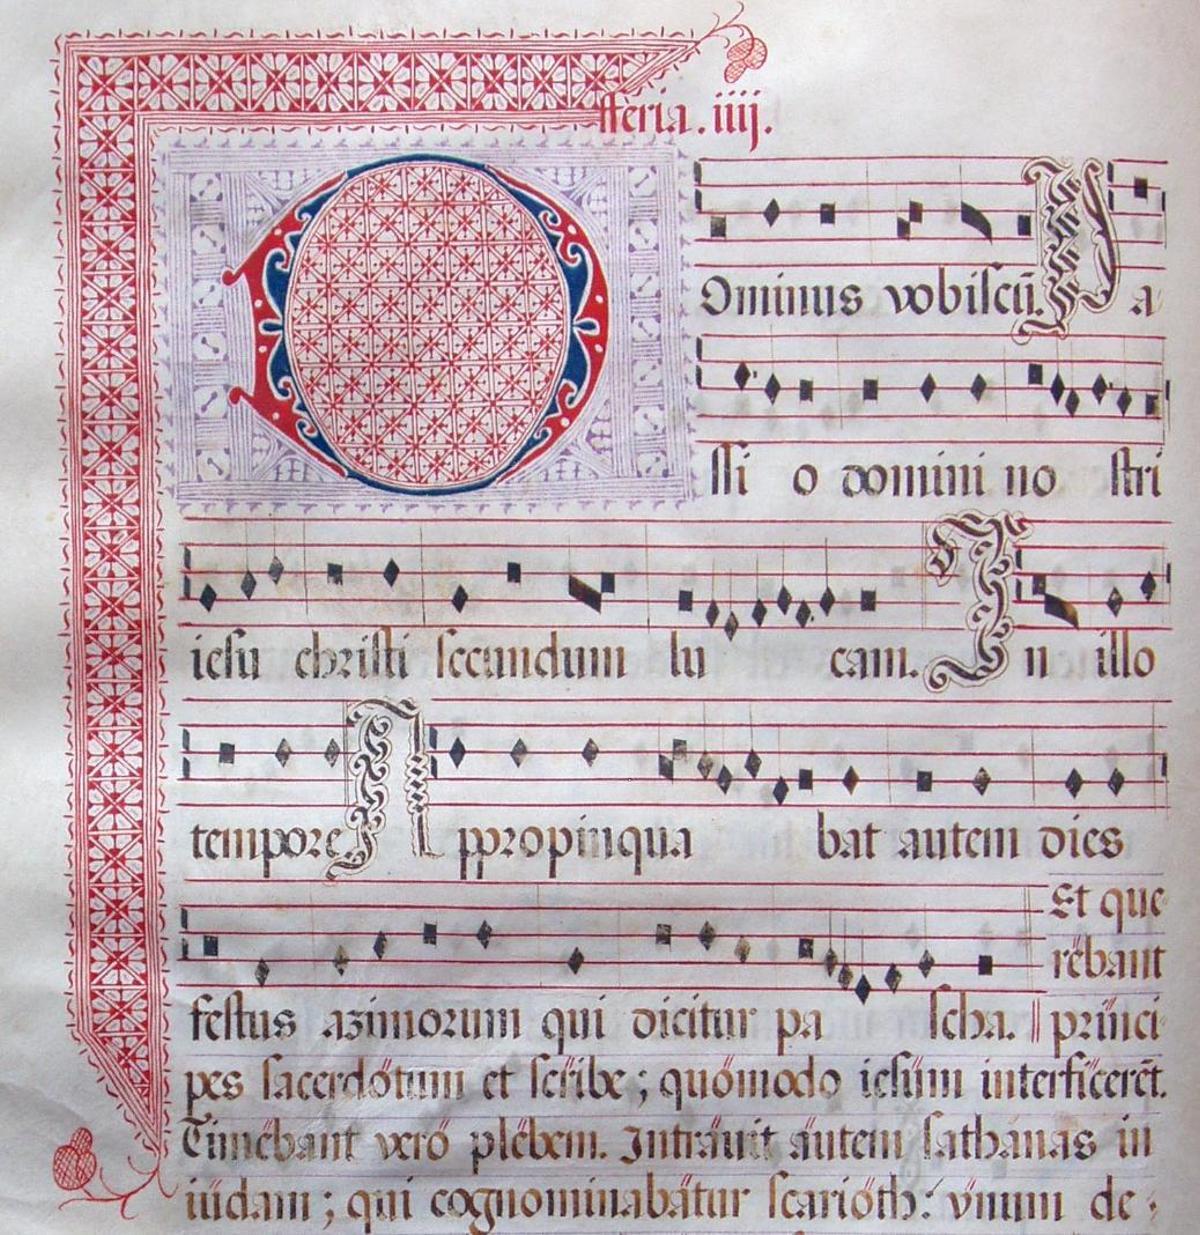 fferia. iiij.
Ominus vobiscū. P a
ssi o domini no stri
iesu christi secundum lu cam. In illo
tempore Appropinqua bat autem dies
festus azimorum qui dicitur pa scha. ||
Et que
rēbant
princi
pes sacerdotum et scribe; quomodo iesum interficerēt.
Timebant vero plebem. Intrauit autem sathanas in
iudam; qui cognominabatur scarioth: vnum de